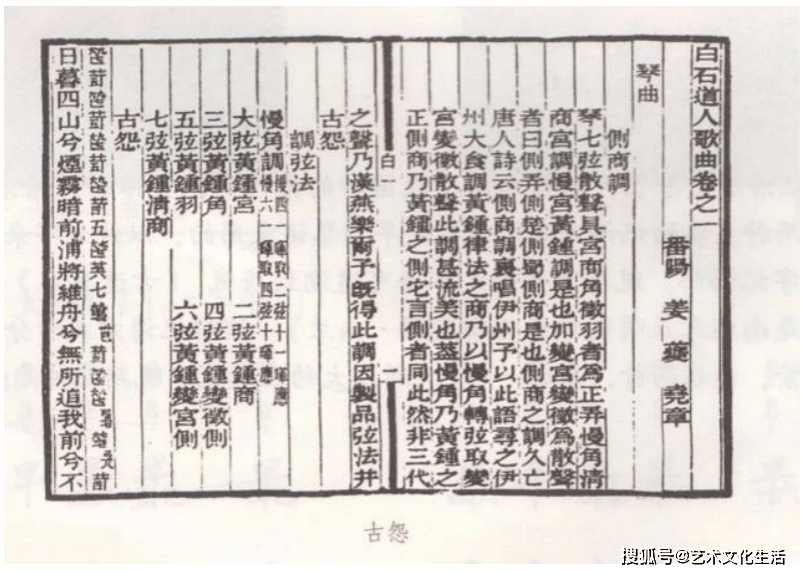 白石道人歌曲卷之一
番陽 姜夔 堯章
琴曲
側商調
琴七弦散聲具宮商角徵羽者為正弄慢角清
商宮調慢宮黃鍾調是也加變宮變徵為散聲
者曰側弄側楚側蜀側商是也側商之調久亡
唐人詩云側商調裏唱伊州予以此語尋之伊
州大食調黃鍾律法之商乃以慢角轉弦取變
宮變徵散聲此調甚流美也蓋慢角乃黃鍾之
正側商乃黃鍾之側它言側者同此然非三代
白一
之聲乃漢燕樂爾予既得此調因製品弦法并
古怨
調弦法
慢角調慢四暉取二弦十一暉應慢六暉取四弦十暉應
大弦黃鍾宮 二弦黃鍾商
三弦黃鍾角 四弦黃鍾變徵側
五弦黃鍾羽 六弦黃鍾變宮側
七弦黃鍾清商
古怨
日暮四山兮煙霧暗前浦將維舟兮無所追我前兮不
古怨
搜狐号@艺术文化生活